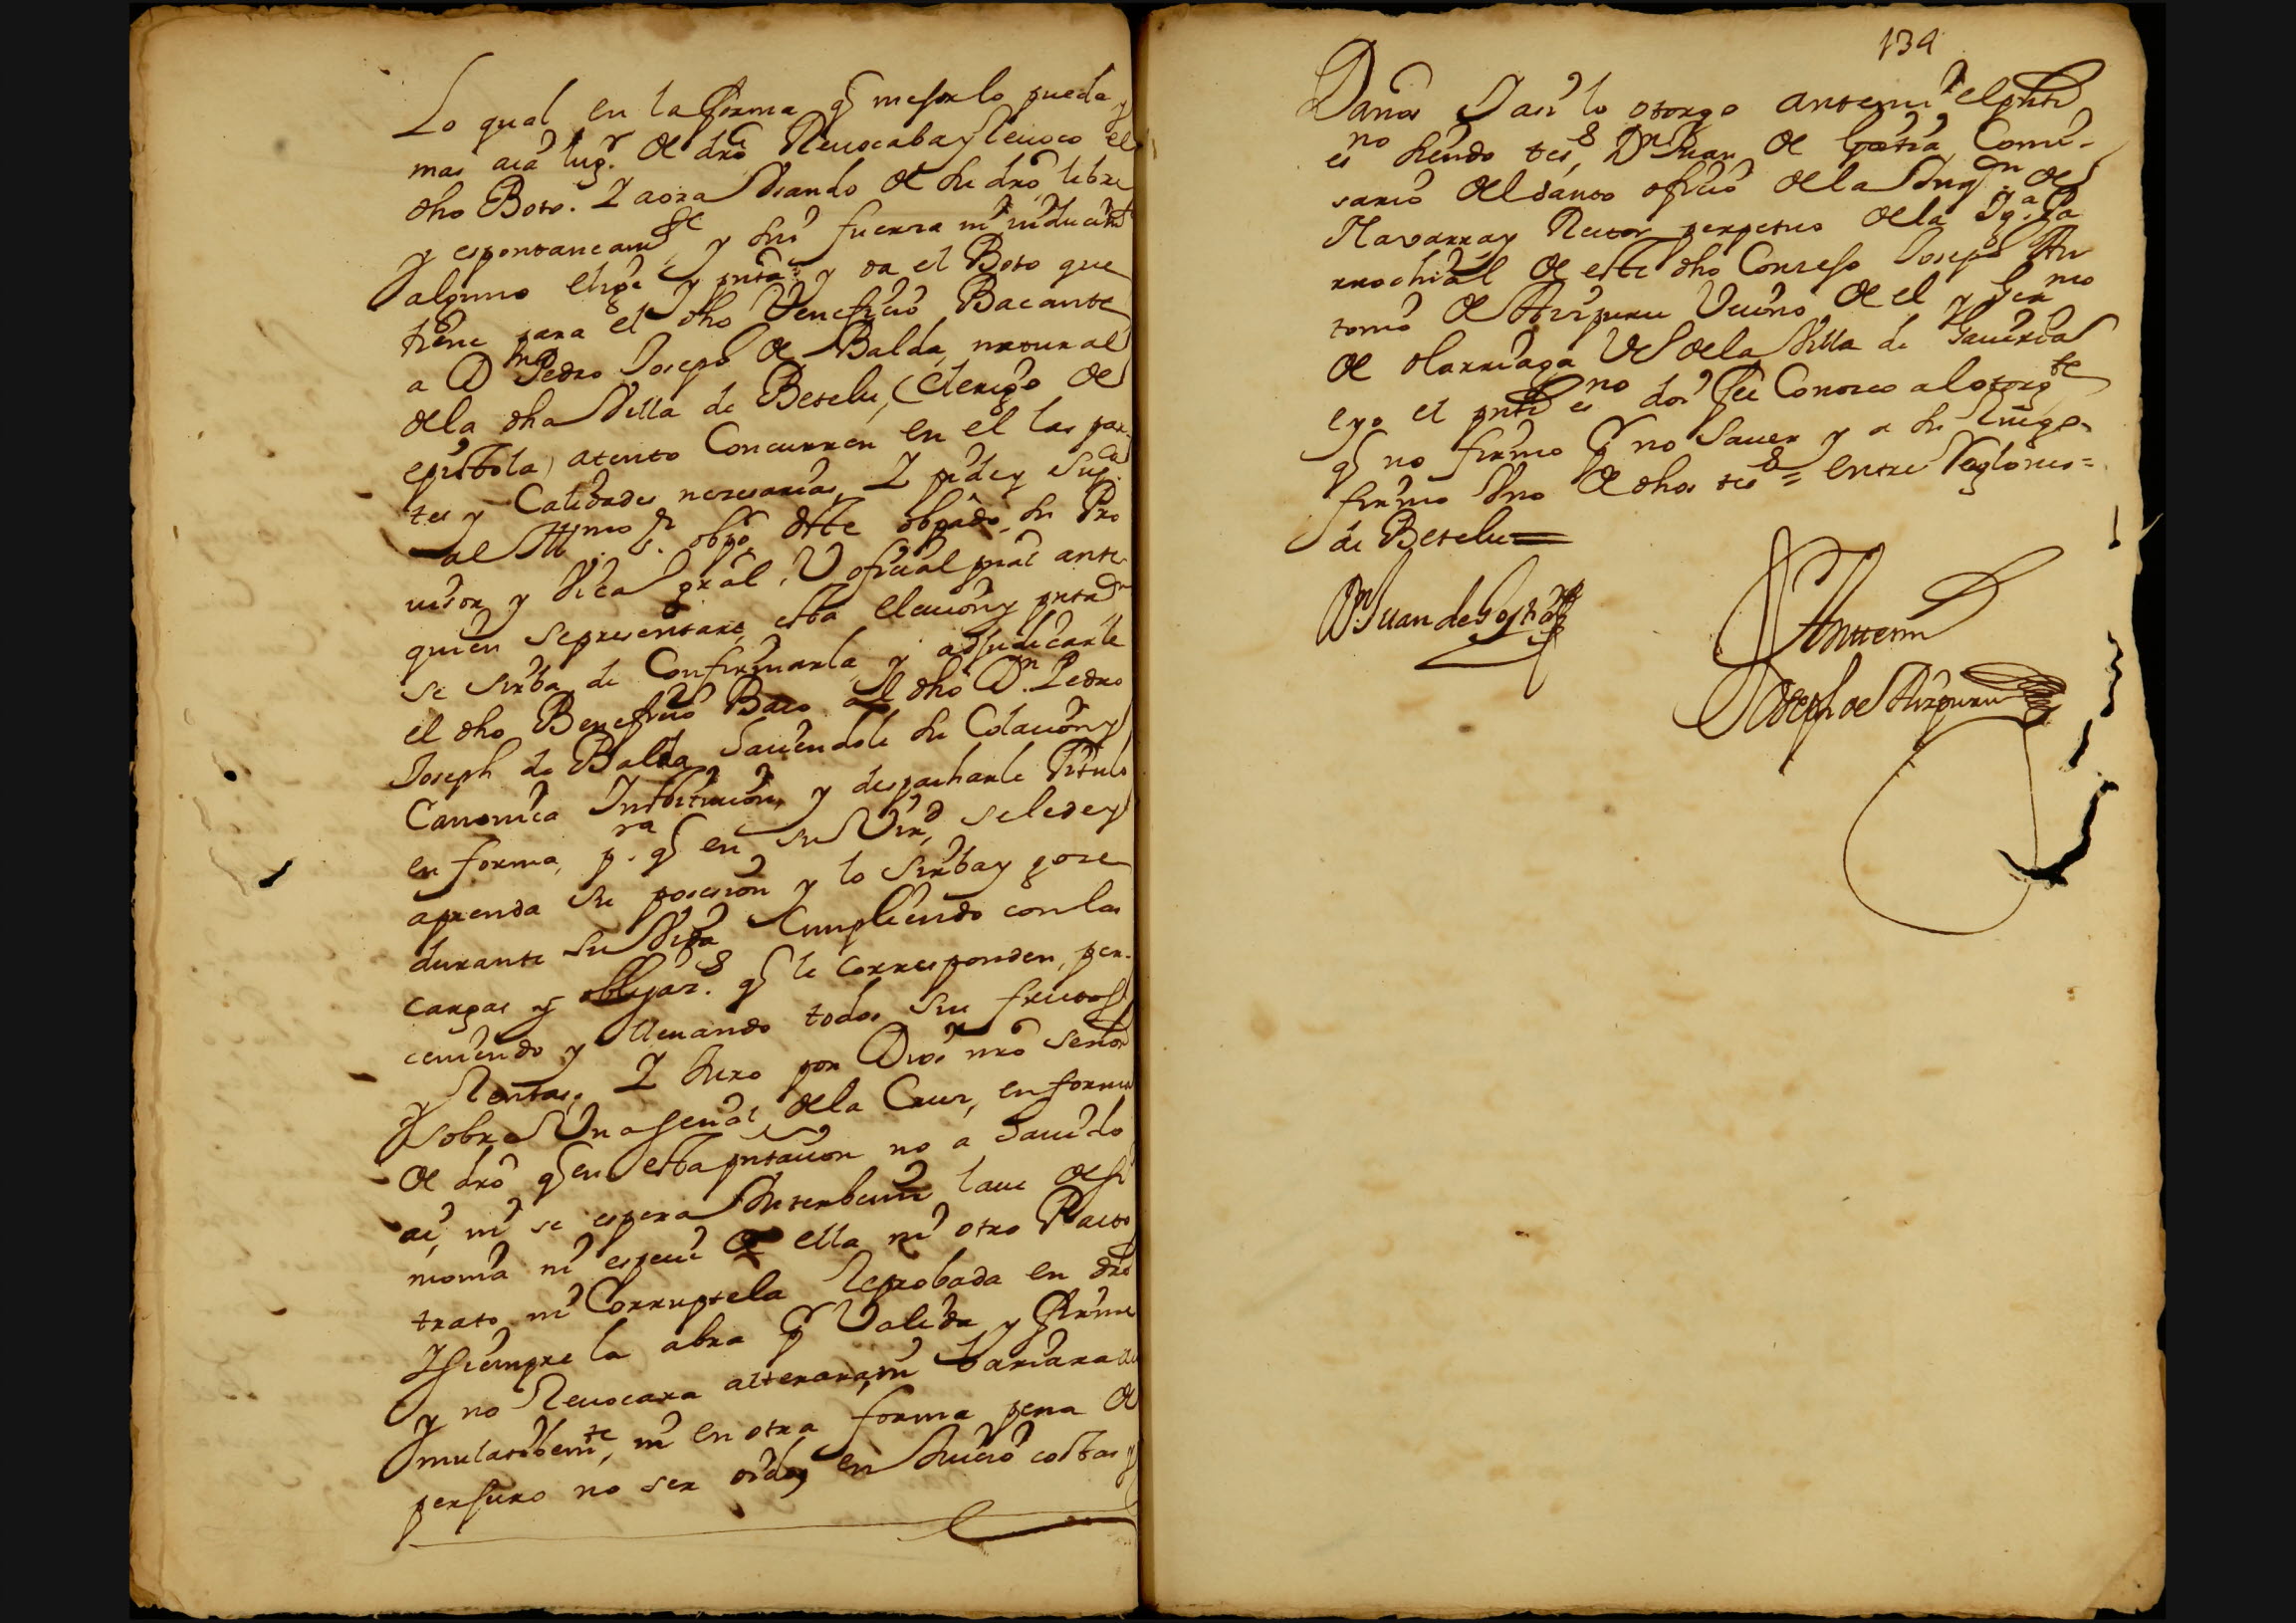 Lo qual en la forma q̃ mejor lo pueda y
mas aia lugr. de dro Reuocaba y Reuoco el
dho Boto. Y aora Usando de su dro, libre
y espontaneamte y sin fuerza ni induciõn
alguno elige y pnta y da el Boto que
tiene para el dho Veneficio Bacante
a Dn Pedro Joseph de Balda, natural
de la dha Villa de Betelu, (Clerigo de
epistola) atento Concurren en el las par-
tes y Calidades nezesarias, Y pide y Supca
al Illmo Sr. obpo deste obpado, su Pro
uisor y Vica gral, V oficial pnal ante
quien se presentare esta eleccion y pntaon
se sirba de Confirmarla y adjudicarle
el dho Beneficio Baco al dho Dn. Pedro
Joseph de Balda haciendole su Colacion y
Canonica Institucion, y despacharle Titulo
en forma, pra. q̃ en su Vird, se le de y
aprenda su posesion y lo sirba y goze
durante su Vida Cumpliendo con las
cargas y obligazs. q̃ le corresponden, per-
ciuiendo y lleuando todos sus frutos
y Rentas, Y Juro por Dios nro Señor
y sobre Una señal de la Cruz, en forma
de dro q̃ en esta pntacion no a hauido
ai, ni se espera Interbenir laue de si
monia ni especie de ella ni otro Pacto
trato ni Corruptela Reprobada en dro
Y siempre la abra pr Valida y firme
y no Reuocara alterara, ni bariara ni
mulatibemte, ni en otra forma pena de
perjuro no ser oido en Juicio costas y
134
Daños Y asi lo otorgo ante mi el pnte
esno siendo tess, Dn Juan de Goñia Comi-
sario del santo oficio de la Inqon de
Nauarra y Retor perpetuo de la Yga. Pa
rrochial de este dho Conzejo Joseph An
tonio de Aizpuru Vecino de el y Germo
de olarriaga Vo de la Villa de Gauiria
e yo el pnte esno doi fee Conozco al otorgte
q̃ no firmo pr no Sauer y a su Ruego
firmo Uno de dhos tess = entre Reglones =
de Betelu =
Dn. Juan de Goñia
Ante mi
Joseph de Aizpuru